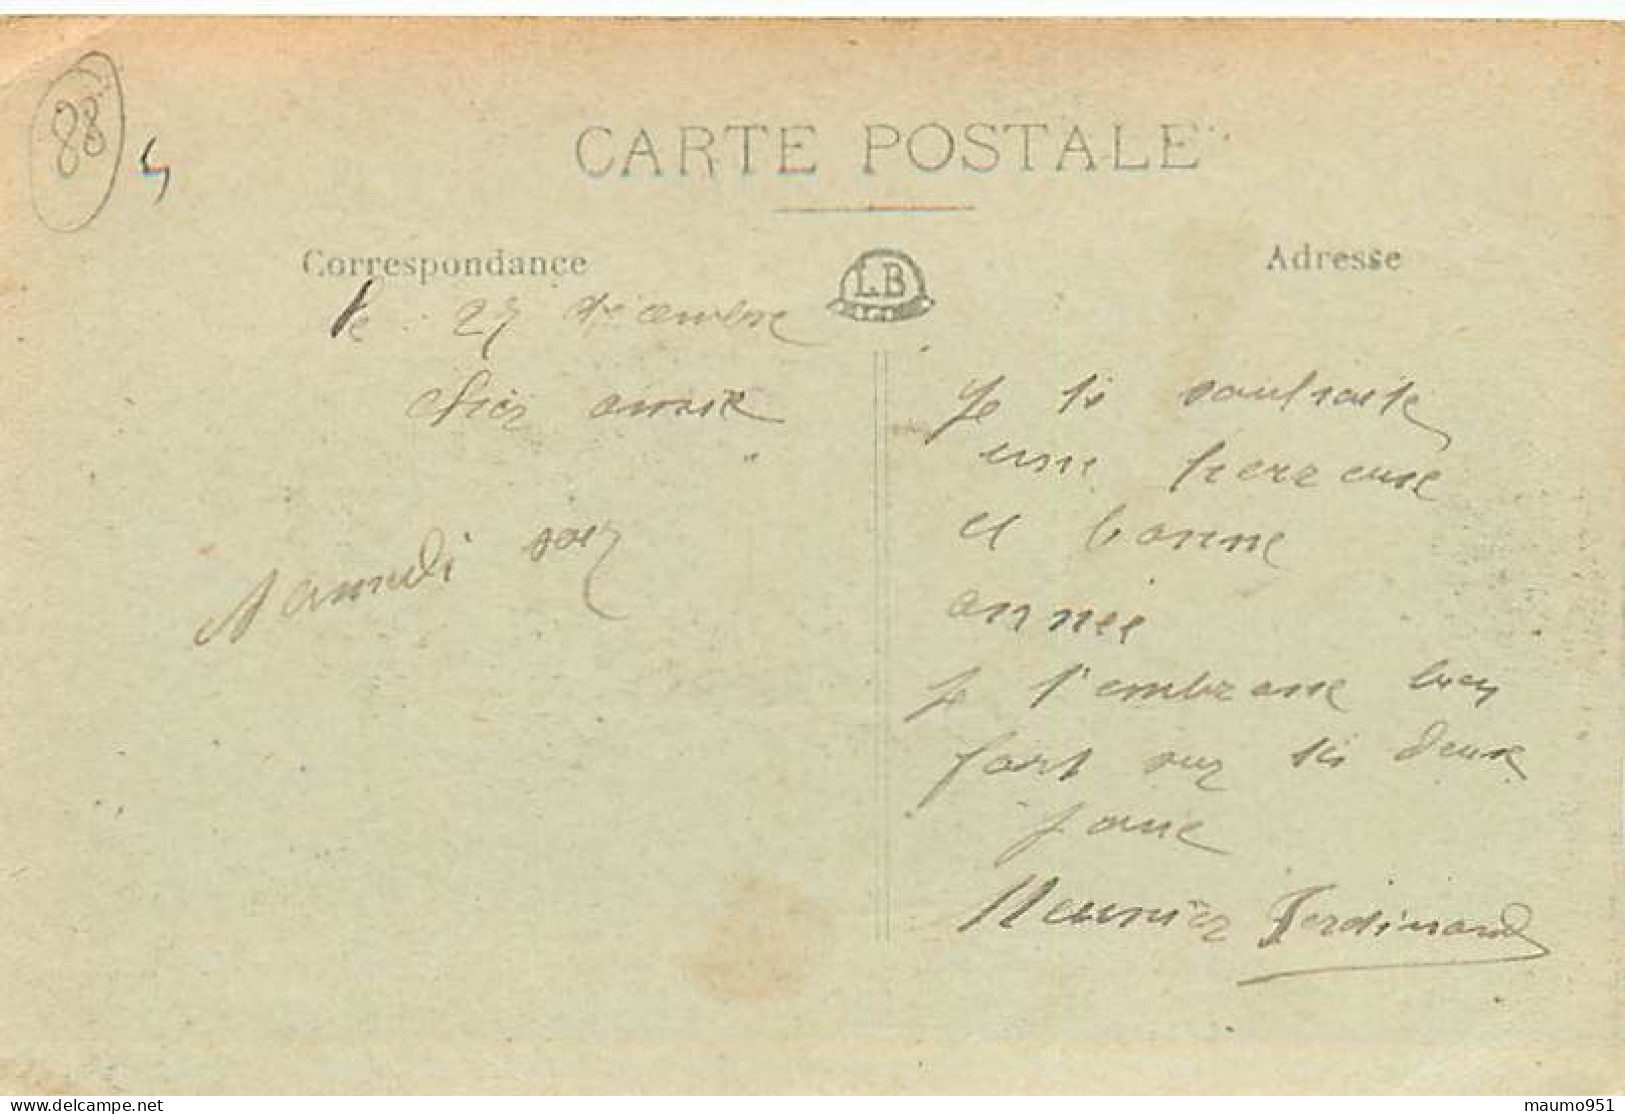 88
CARTE POSTALE
Correspondance
Adresse
LB
le 27 décembre
cher amie
Samedi soir
Je te souhaite
une herreuse
et bonne
année
Je t'embrasse bien
fort sur tes deux
joue
Meunier Ferdinand
delcampe.net
maumo951